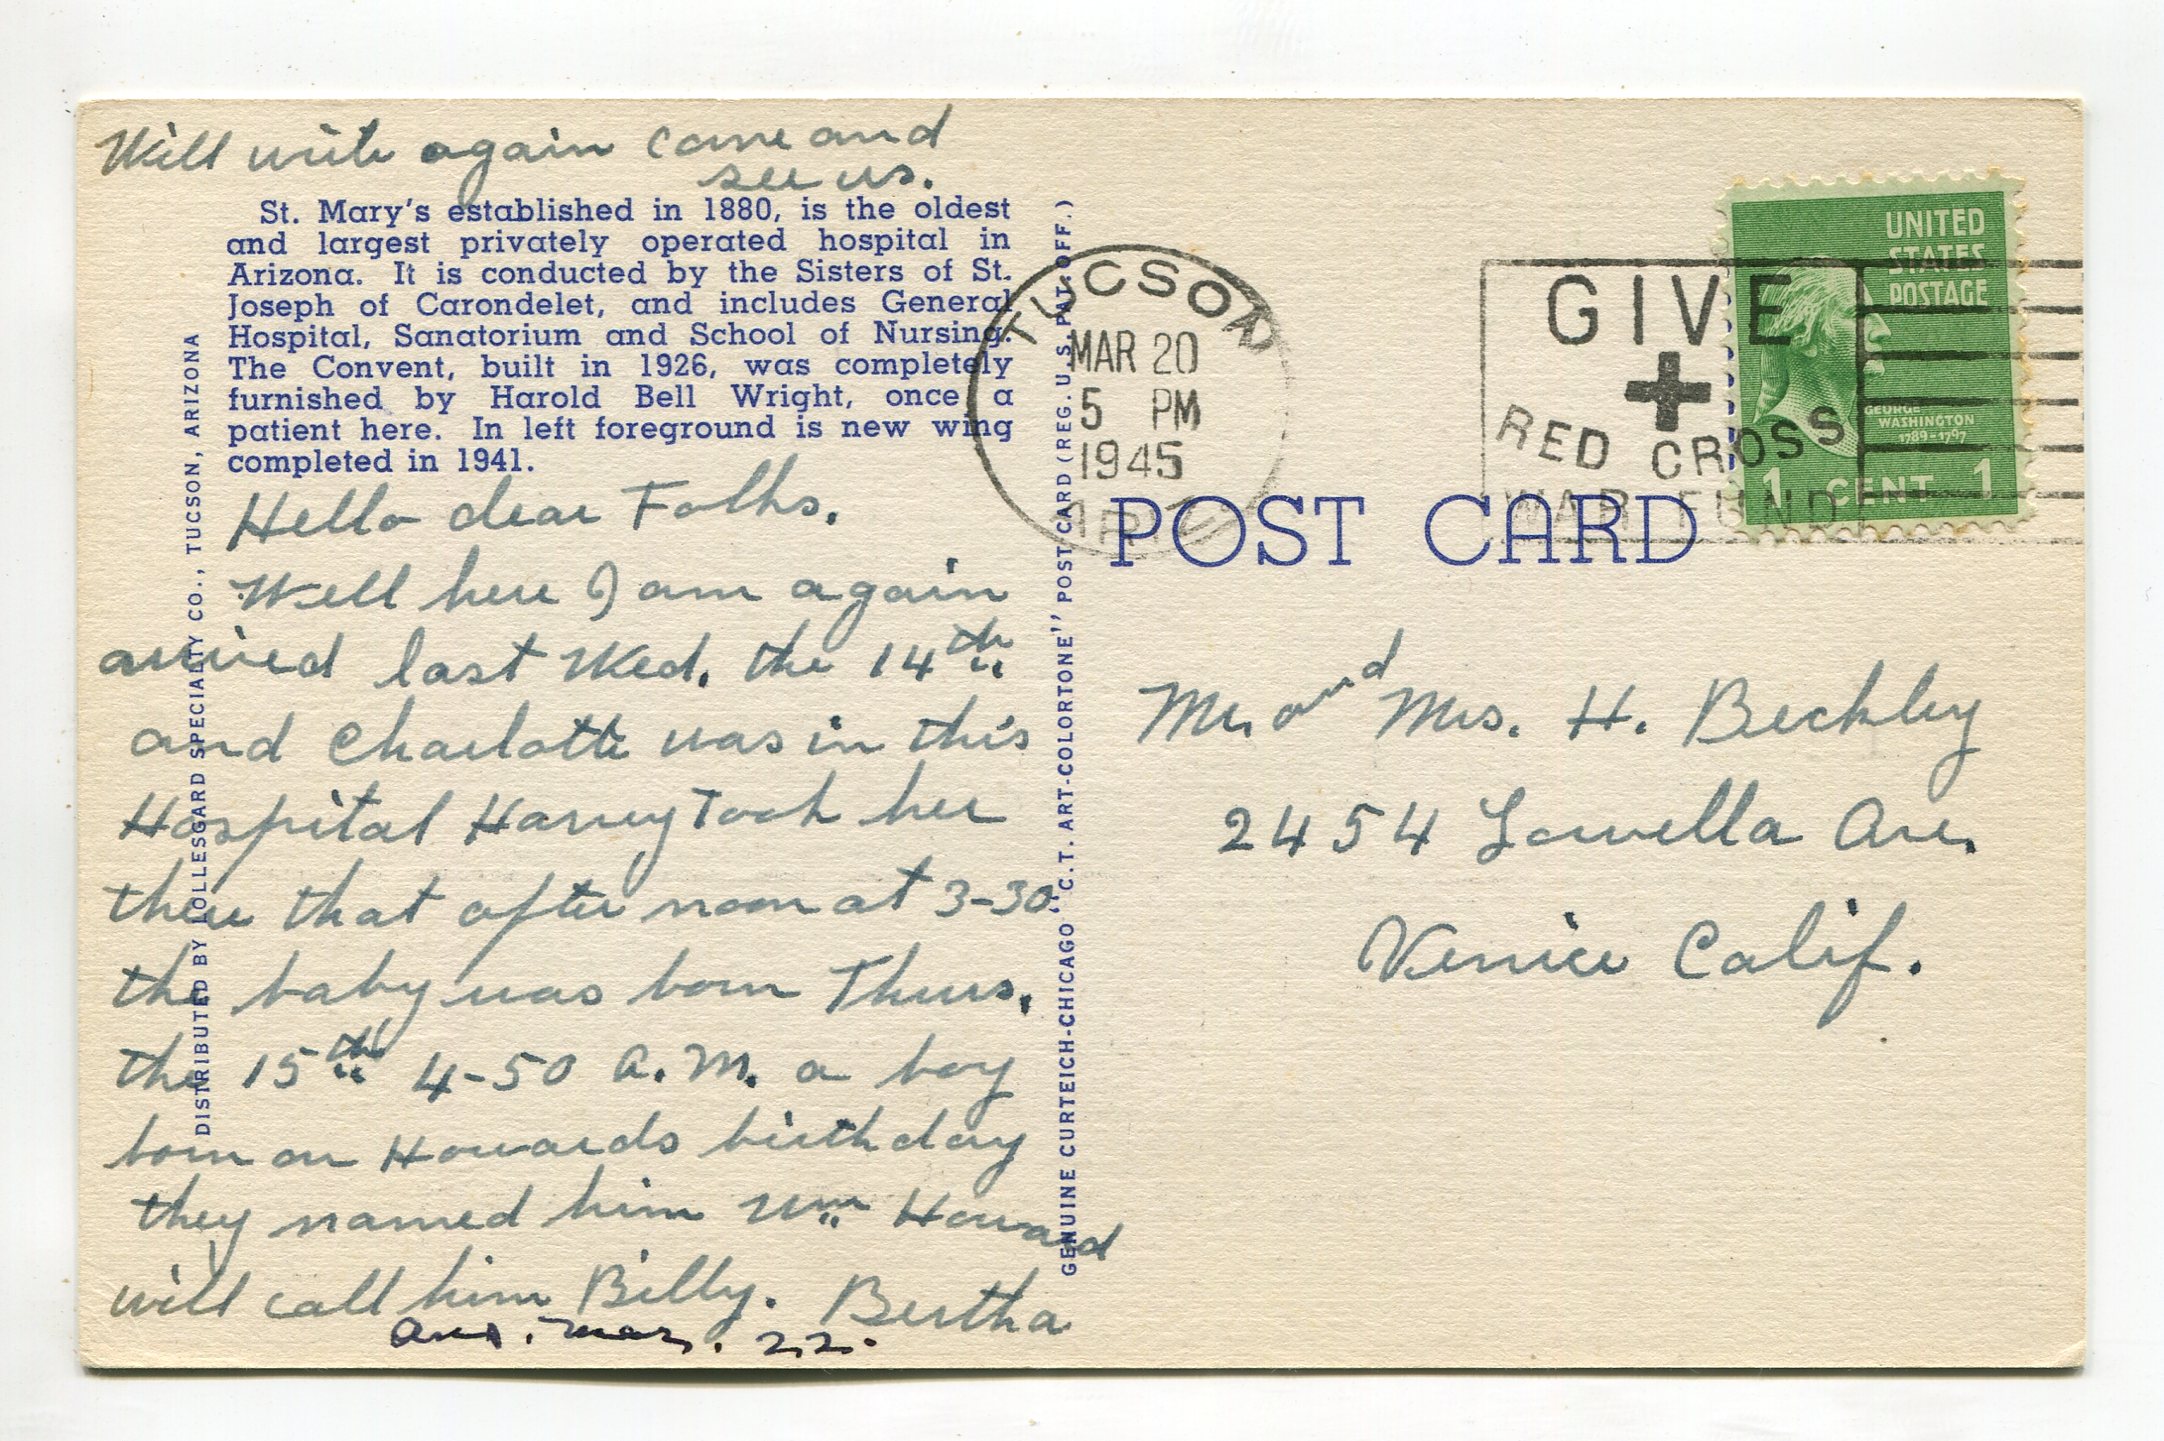 Will write again come and
see us.
St. Mary's established in 1880, is the oldest
and largest privately operated hospital in
Arizona. It is conducted by the Sisters of St.
Joseph of Carondelet, and includes General
Hospital, Sanatorium and School of Nursing.
The Convent, built in 1926, was completely
furnished by Harold Bell Wright, once a
patient here. In left foreground is new wing
completed in 1941.
Hello dear Folks.
Well here I am again
arrived last Wed. the 14th
and Charlotte was in this
Hospital Harvey Took her
there that after noon at 3-30
the baby was born Thurs.
the 15th 4-50 A.M. a boy
born on Howards birthday
they named him Wm Howard
will call him Billy. Bertha
Mar. 22.
DISTRIBUTED BY LOLLESGARD SPECIALTY CO., TUCSON, ARIZONA
GENUINE CURTEICH-CHICAGO "C.T. ART-COLORTONE" POST CARD (REG. U.S. PAT. OFF.)
TUCSON
MAR 20
5 PM
1945
ARIZ.
GIVE
RED CROSS
WAR FUND
UNITED
STATES
POSTAGE
GEORGE
WASHINGTON
1789-1797
1 CENT 1
POST CARD
Mr. and Mrs. H. Beckley
2454 Lowella Ave.
Venice Calif.